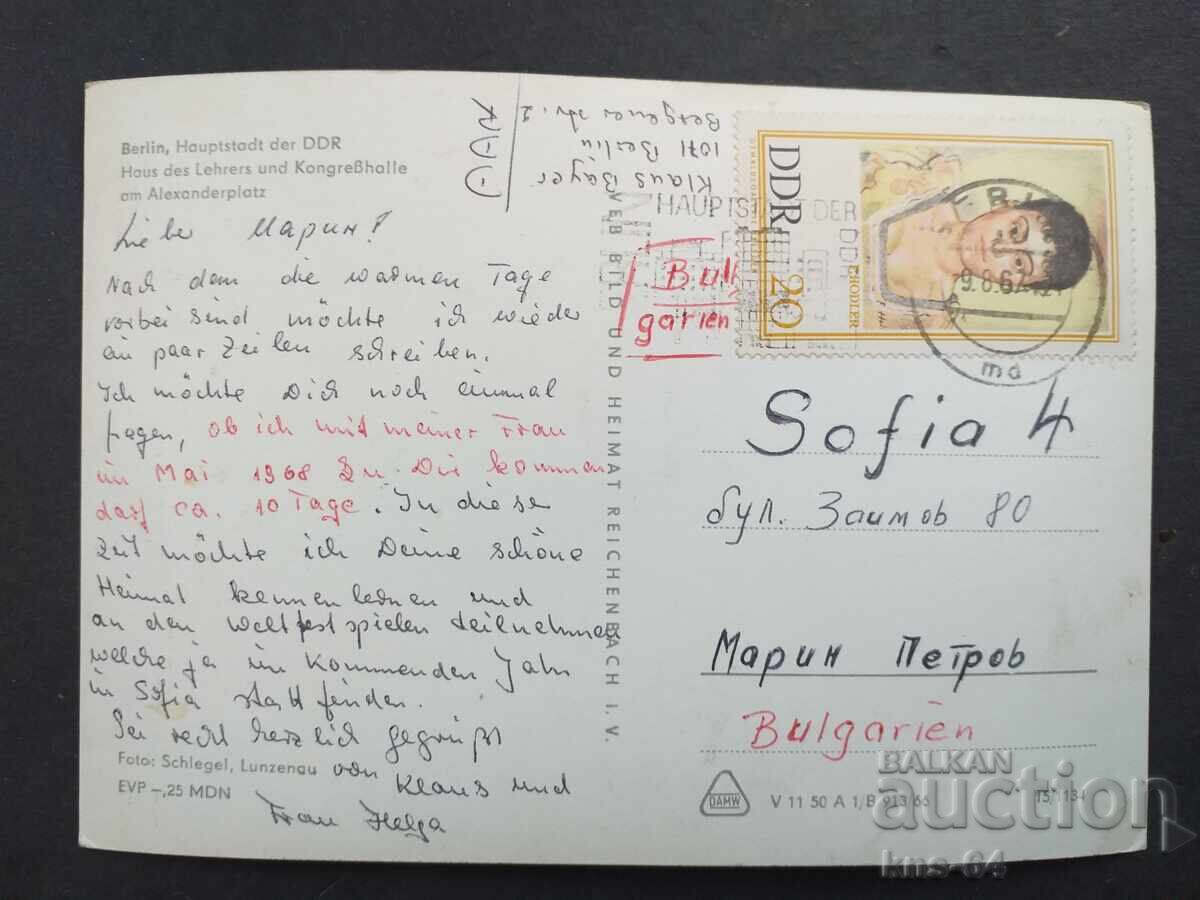 Berlin, Hauptstadt der DDR
Haus des Lehrers und Kongreßhalle
am Alexanderplatz
Liebe Марин!
Nach dem die warmen Tage
vorbei sind möchte ich wieder
ein paar Zeilen schreiben.
Ich möchte Dich noch einmal
fragen, ob ich mit meiner Frau
im Mai 1968 zu Dir kommen
darf ca. 10 Tage. In diese
Zeit möchte ich Deine schöne
Heimat kennen lernen und
an den Weltfestspielen teilnehmen
welche ja im kommenden Jahr
in Sofia statt finden.
Sei recht herzlich gegrüßt
von Klaus und
Frau Helga
Foto: Schlegel, Lunzenau
EVP –,25 MDN
Klaus Bayer
1071 Berlin
Str. 2
VEB BILD UND HEIMAT REICHENBACH I. V.
HAUPTSTADT DER
DDR
Bul
garien
DDR
20
HODLER
9.8.67
Sofia 4
бул. Заимов 80
Марин Петров
Bulgarien
DAMW
V 11 50 A 1, B 913/66
BALKAN
auction
kns-64